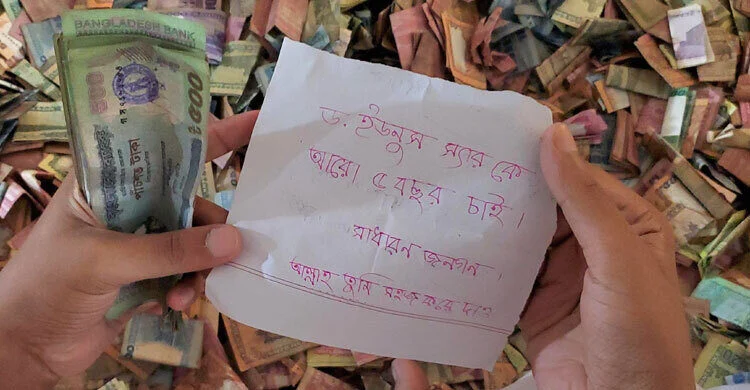 BANGLADESH BANK
৫০০
500
পাঁচশত টাকা
ড. ইউনুস স্যার কে
আরো ৫ বছর চাই।
সাধারন জনগন।
আল্লাহ তুমি সহজ করে দাও